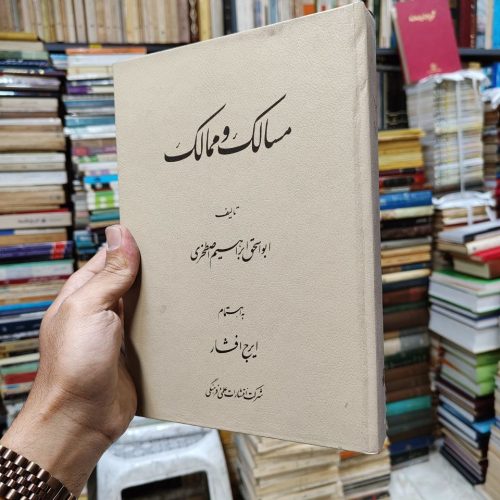 مسالک و ممالک
تالیف
ابواسحق ابراهیم اصطخری
به اهتمام
ایرج افشار
شرکت انتشارات علمی و فرهنگی